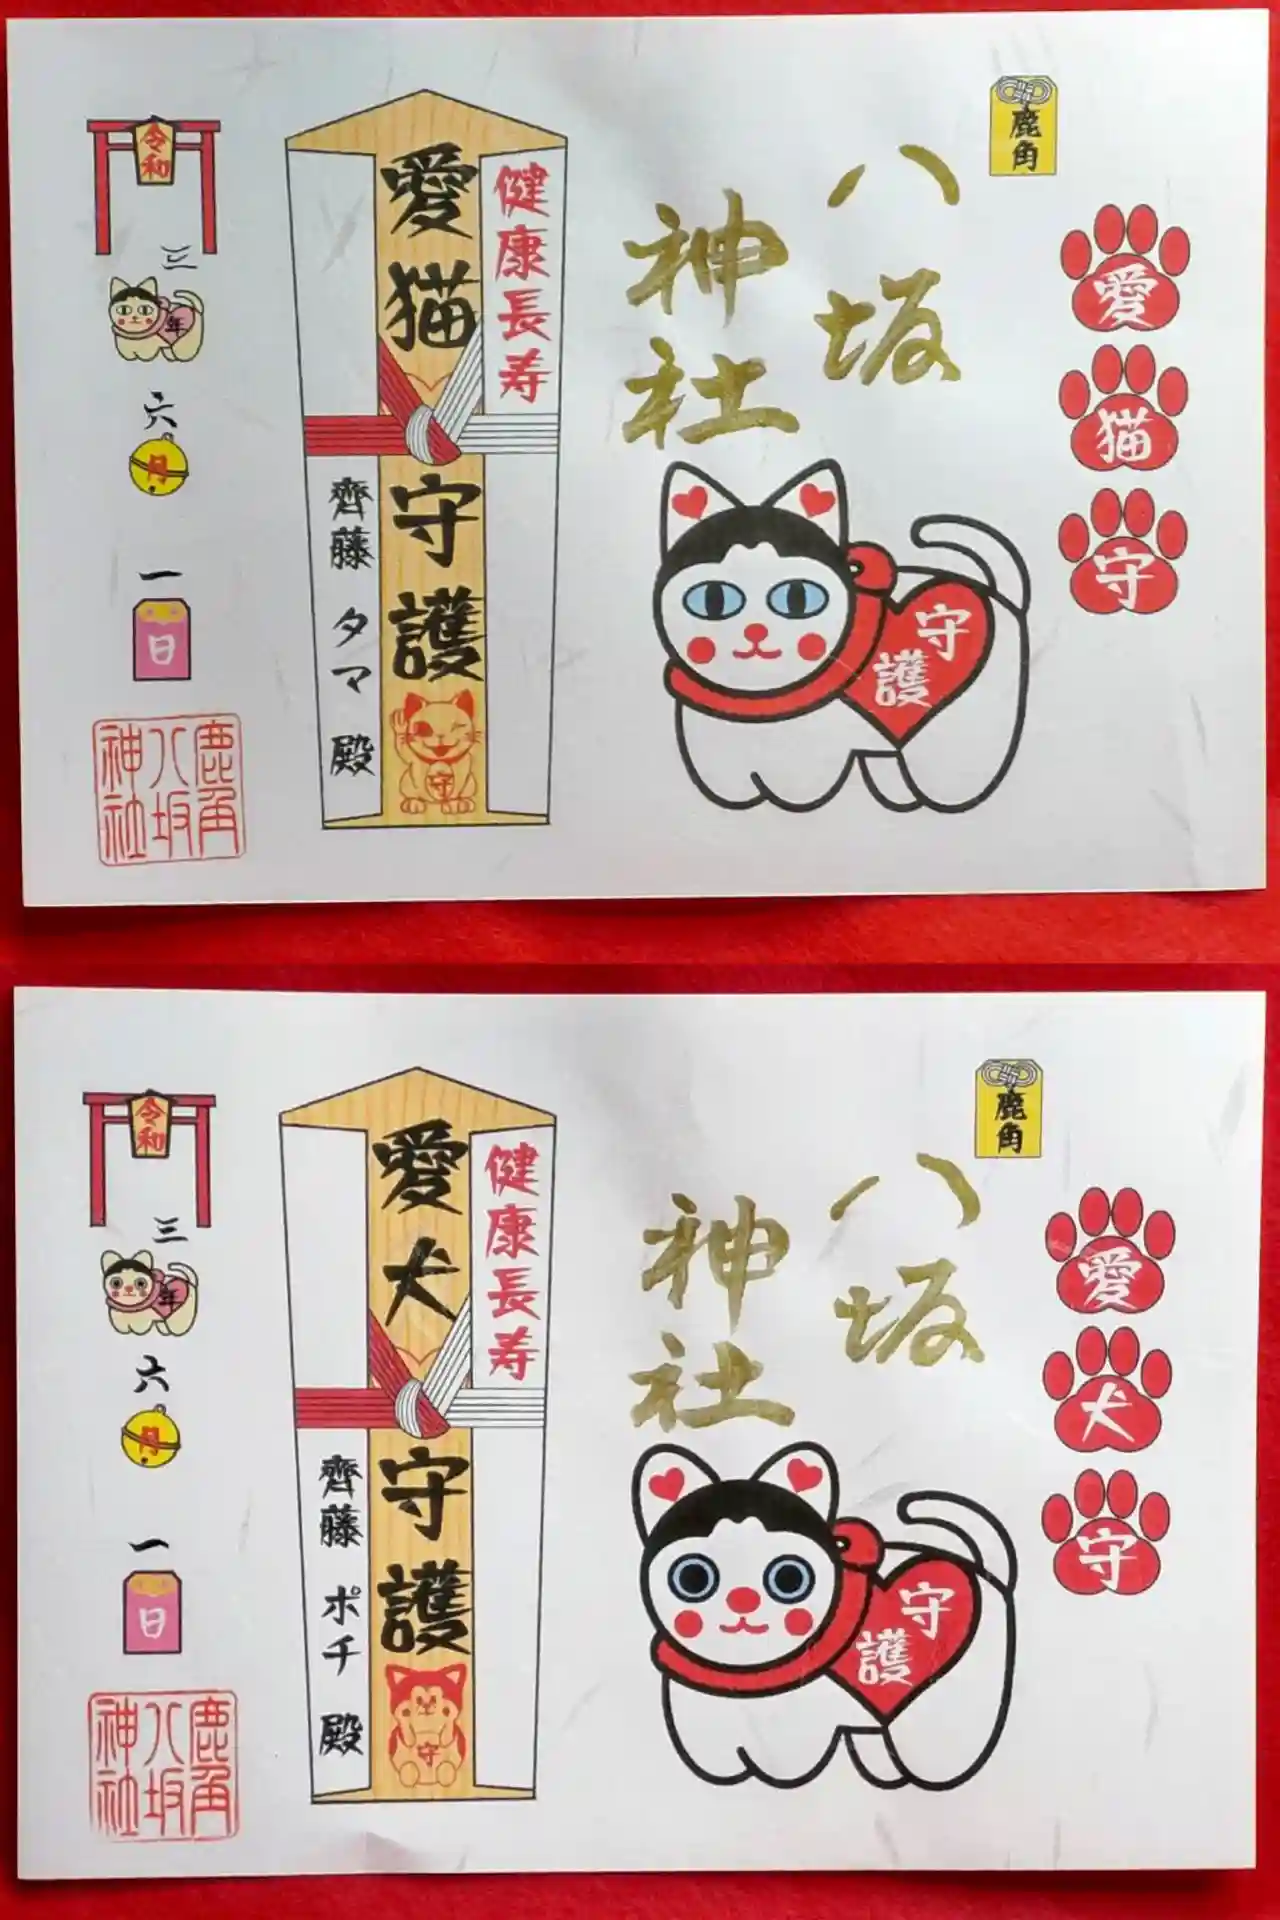 鹿角
愛
猫
守
八坂
神社
守
護
健康長寿
愛猫守護
守
齊藤 タマ 殿
令和
三
年
六
月
一
日
鹿角
八坂
神社
鹿角
愛
犬
守
八坂
神社
守
護
健康長寿
愛犬守護
守
齊藤 ポチ 殿
令和
三
年
六
月
一
日
鹿角
八坂
神社